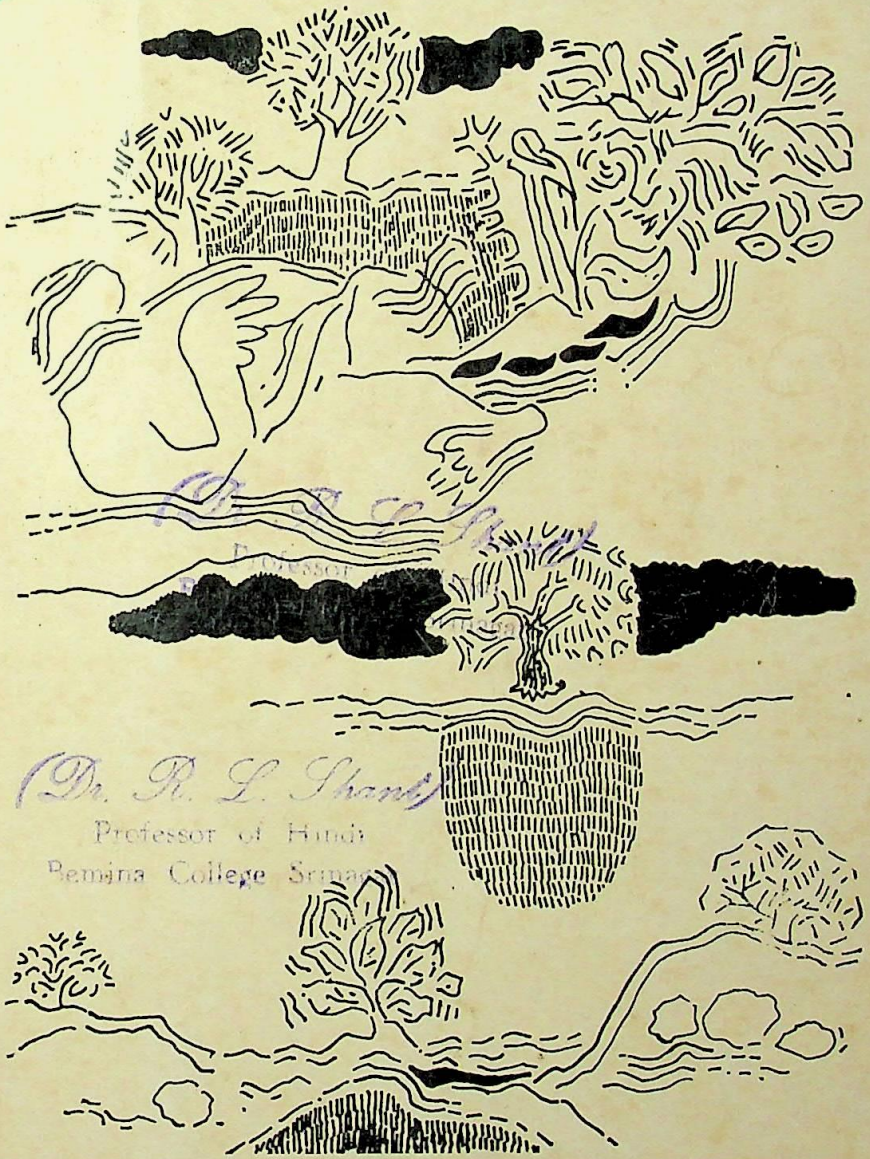 (Dr. R. L. Shant)
Professor
(Dr. R. L. Shant)
Professor of Hindi
Bemina College Srinagar